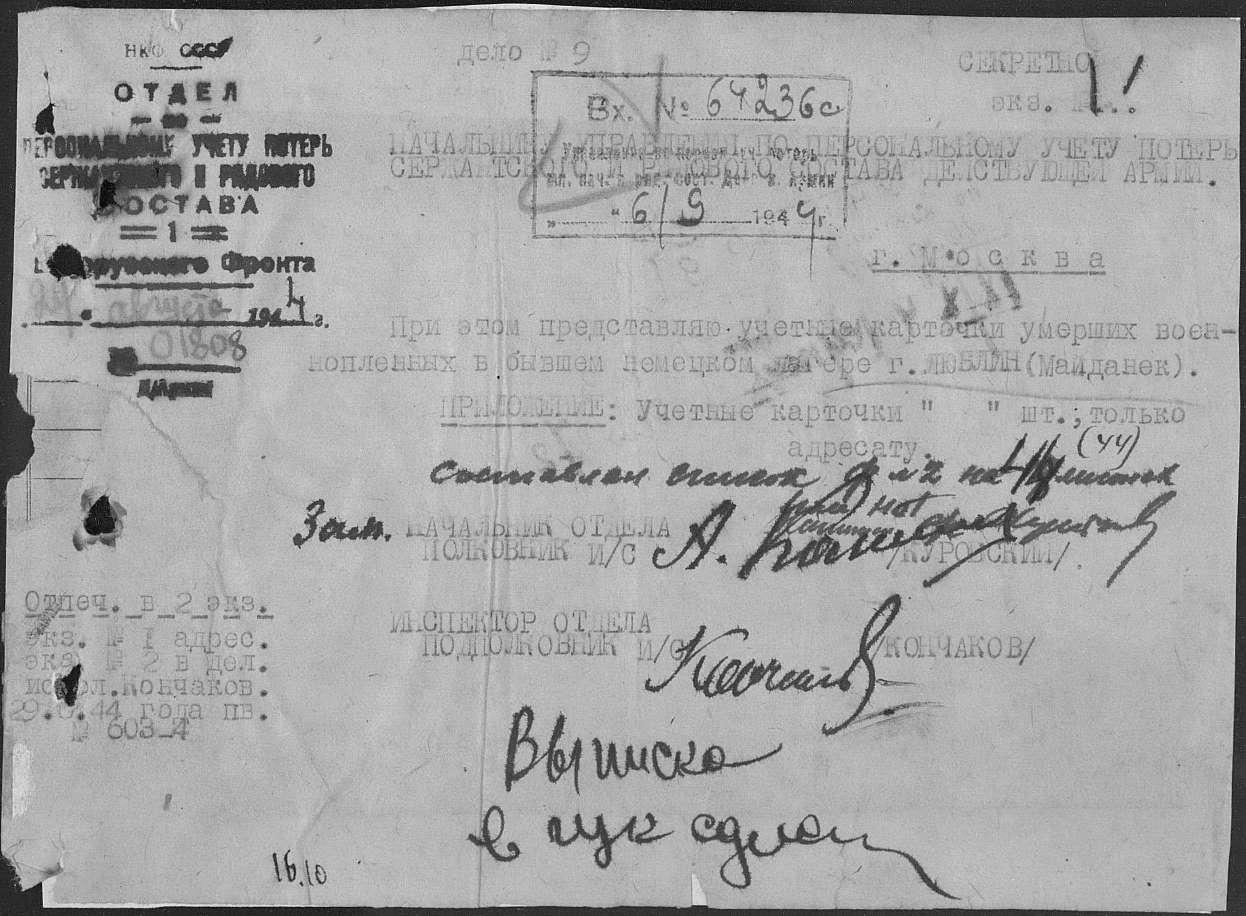 НКО СССР
ОТДЕЛ
по
ПЕРСОНАЛЬНОМУ УЧЕТУ ПОТЕРЬ
СЕРЖАНТСКОГО И РЯДОВОГО
СОСТАВА
= 1 =
Белорусского Фронта
августа 1944 г.
01808
дело № 9
СЕКРЕТНО
экз. №
Вх. № 64236с
" " 6/9 1944г.
НАЧАЛЬНИКУ УПРАВЛЕНИЯ ПО ПЕРСОНАЛЬНОМУ УЧЕТУ ПОТЕРЬ
СЕРЖАНТСКОГО И РЯДОВОГО СОСТАВА ДЕЙСТВУЮЩЕЙ АРМИИ.
г. Москва
При этом представляю учетные карточки умерших воен-
нопленных в бывшем немецком лагере г. ЛЮБЛИН (Майданек).
ПРИЛОЖЕНИЕ: Учетные карточки " " шт.; только
адресату.
(44)
Составлен список ф №2 на листах
Зам. НАЧАЛЬНИК ОТДЕЛА
ПОЛКОВНИК И/С А. /КУРОВСКИЙ/
ИНСПЕКТОР ОТДЕЛА
ПОДПОЛКОВНИК И/С /КОНЧАКОВ/
Отпеч. в 2 экз.
экз. № 1 адрес.
экз № 2 в дел.
испол. Кончаков.
29.8.44 года пв.
№ 603_4
Выписка
в гук сдана
16.10